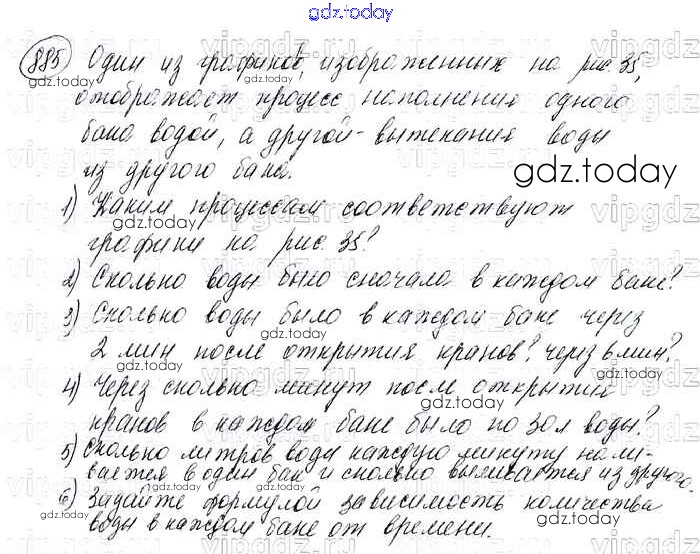 gdz.today
885 Один из графиков, изображенных на рис. 35,
отображает процесс наполнения одного
бака водой, а другой - вытекания воды
из другого бака.
1) Каким процессам соответствуют
графики на рис. 35?
2) Сколько воды было сначала в каждом баке?
3) Сколько воды было в каждом баке через
2 мин после открытия кранов? через 6 мин?
4) Через сколько минут после открытия
кранов в каждом баке было по 30 л воды?
5) Сколько литров воды каждую минуту нали-
вается в один бак и сколько выливается из другого.
6) Задайте формулой зависимость количества
воды в каждом баке от времени.
gdz.today
gdz.today
gdz.today
gdz.today
gdz.today
gdz.today
gdz.today
gdz.today
gdz.today
gdz.today
gdz.today
gdz.today
vipgdz
vipgdz
vipgdz